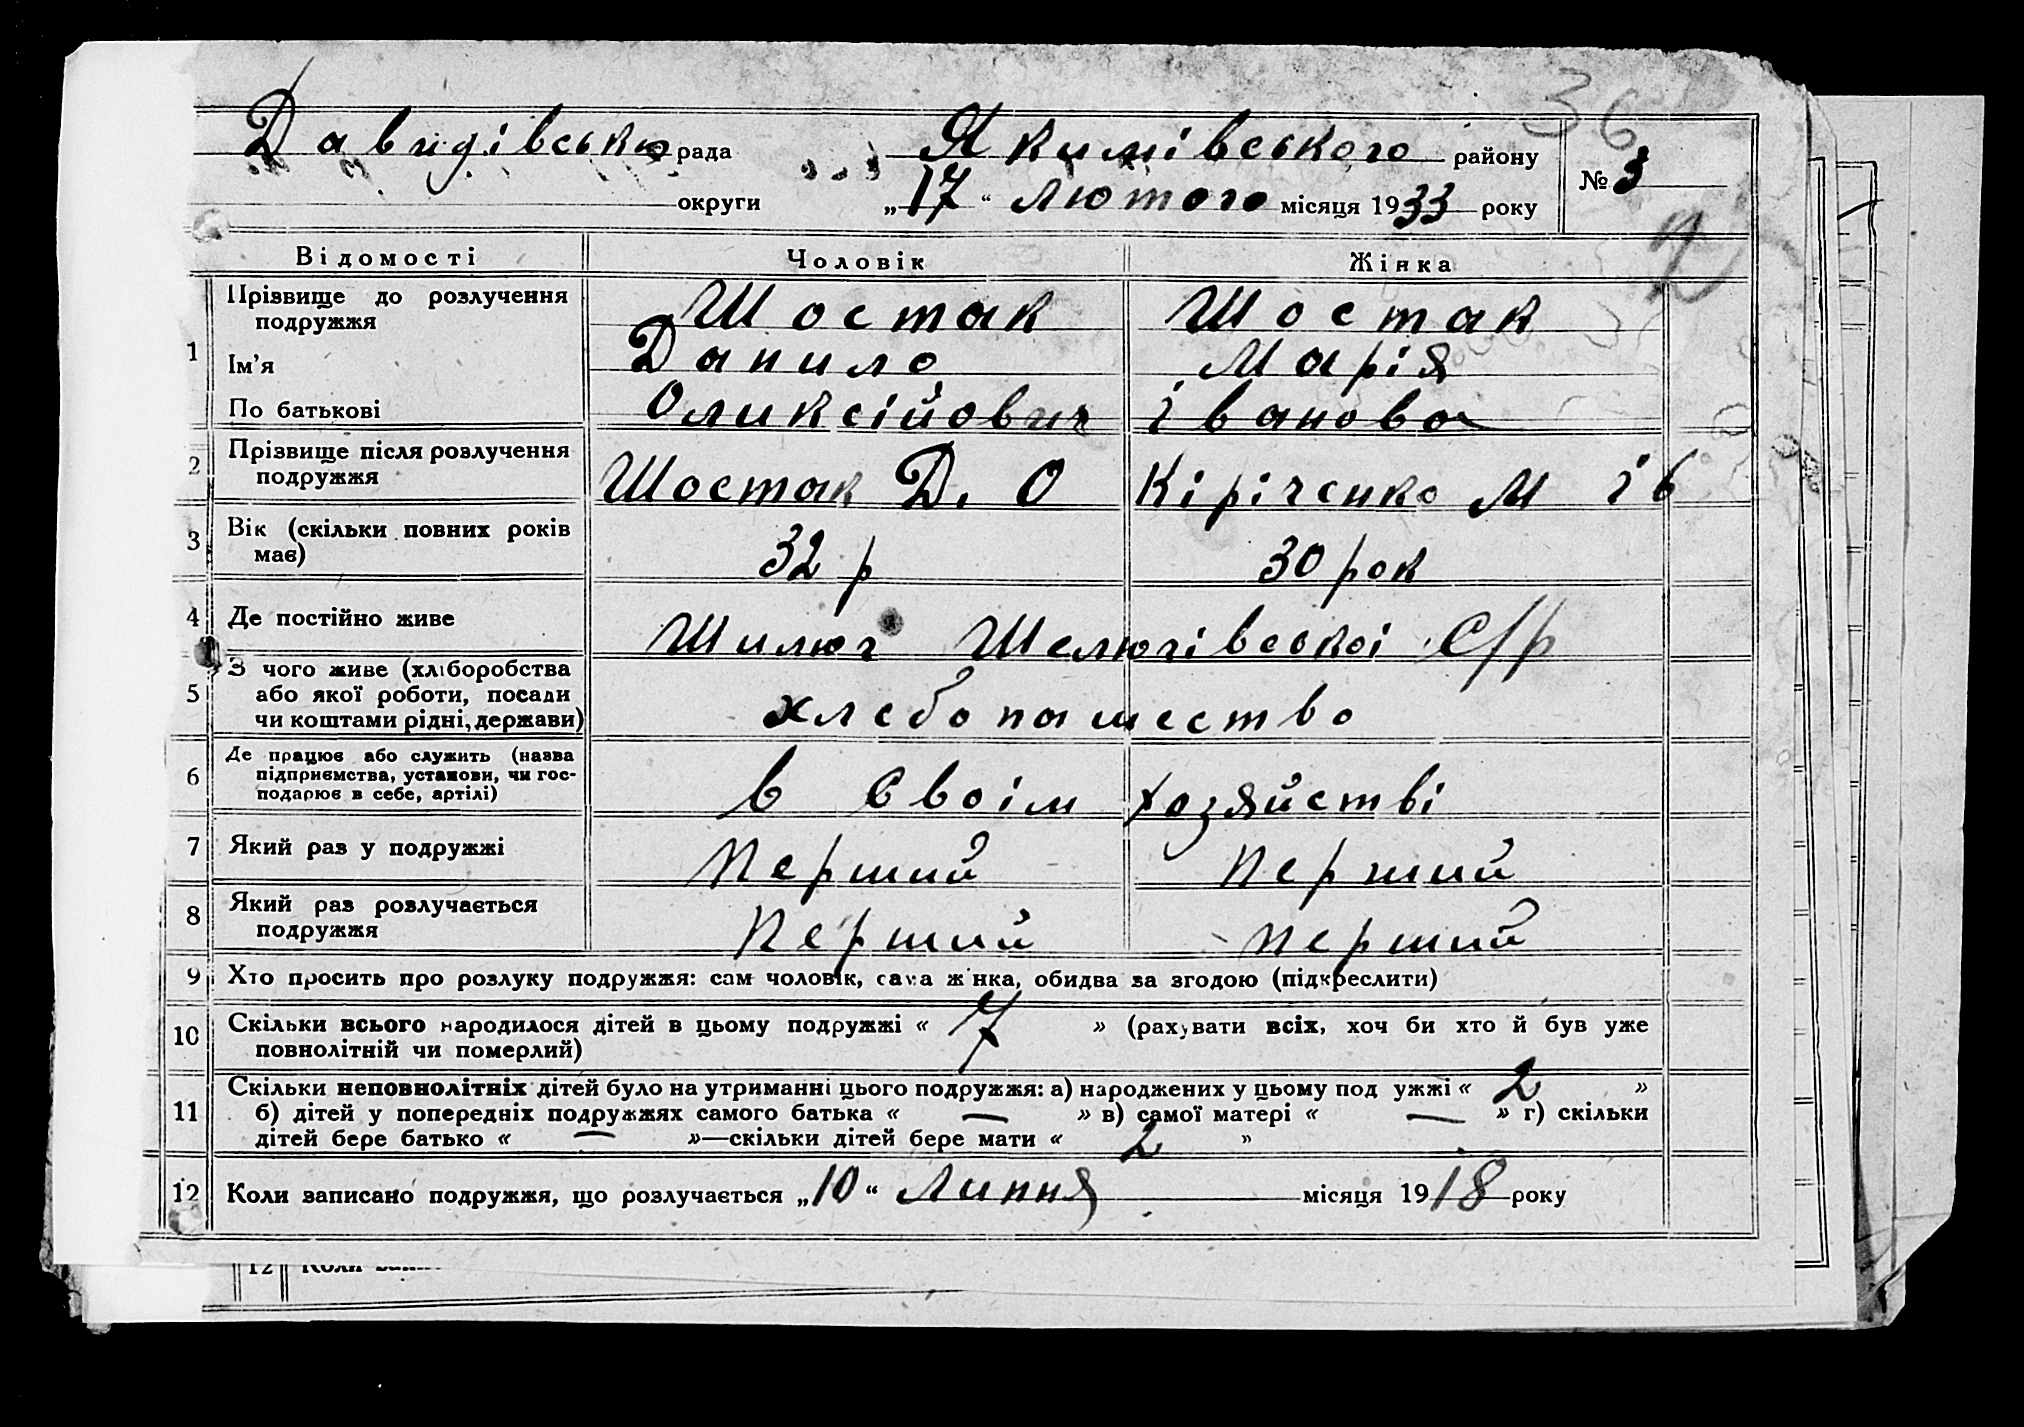 36
Давидівська рада Якимівського району № 3
округи „17“ лютого місяця 1933 року
Відомості Чоловік Жінка
1 Прізвище до розлучення подружжя Шостак Шостак
Ім’я Данило Марія
По батькові Оликсійович івановa
2 Прізвище після розлучення подружжя Шостак Д. О Кірічєнко М ів
3 Вік (скільки повних років має) 32 р 30 рок
4 Де постійно живе Шилюг Шелюгівської С/р
5 З чого живе (хліборобства або якої роботи, посади чи коштами рідні, держави) хлебопашество
6 Де працює або служить (назва підприємства, установи, чи господарює в себе, артілі) в Своім хозяйстві
7 Який раз у подружжі Перший Перший
8 Який раз розлучається подружжя Перший перший
9 Хто просить про розлуку подружжя: сам чоловік, сама жінка, обидва за згодою (підкреслити)
10 Скільки всього народилося дітей в цьому подружжі « 7 » (рахувати всіх, хоч би хто й був уже
повнолітній чи померлий)
11 Скільки неповнолітніх дітей було на утриманні цього подружжя: а) народжених у цьому под ужжі « 2 »
б) дітей у попередніх подружжях самого батька « — » в) самої матері « — » г) скільки
дітей бере батько « — »—скільки дітей бере мати « 2 »
12 Коли записано подружжя, що розлучається „10“ Липня місяця 1918 року
12